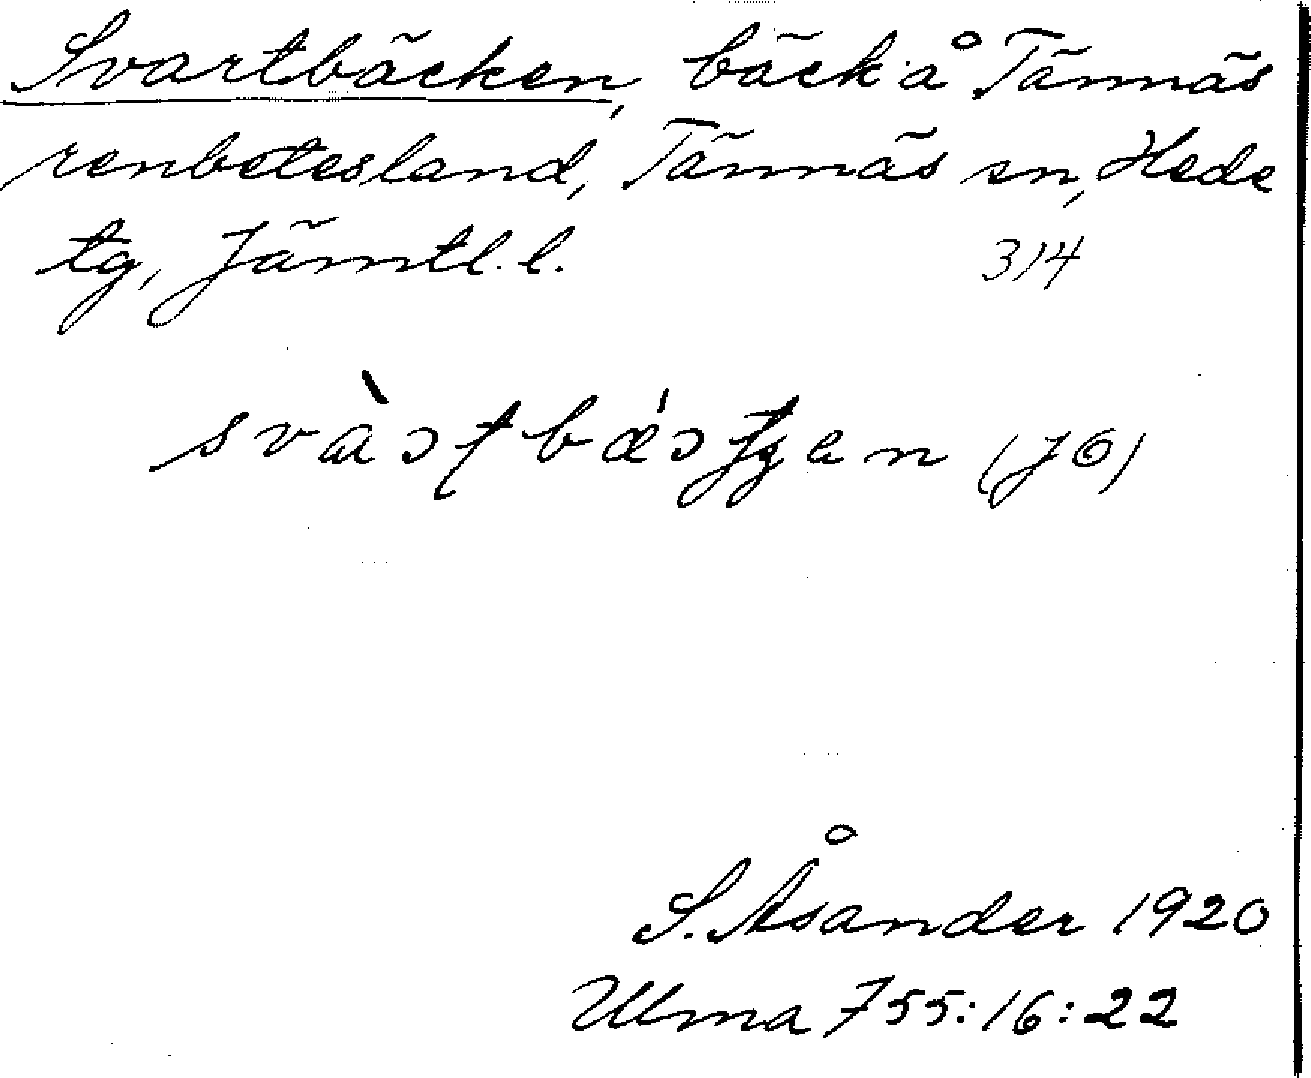 Svartbäcken, bäck å Tännäs
renbetesland, Tännäs sn, Hede
tg, Jämtl. l. 314
(JÖ)
S. Åsander 1920
Ulma 755:16:22